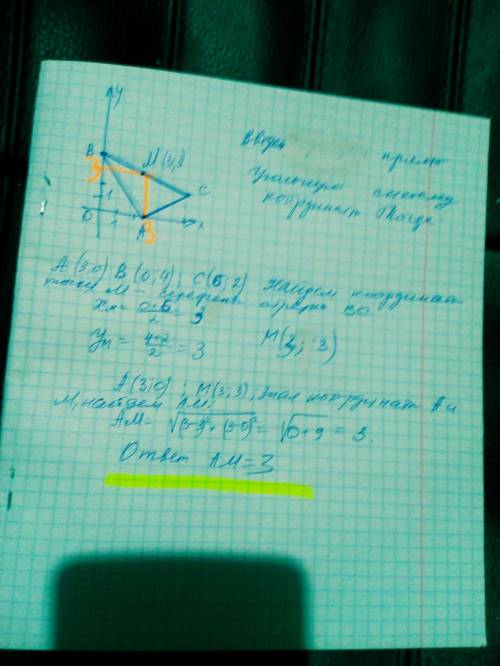 y
B
3
M(3,3)
C
1
0
1
A
3
x
Введём прямо
угольную систему
координат. Тогда:
A(3;0) B(0;4); C(6;2) Найдем координаты
точки M – середины отрезка BC
Xм = 0+6/2 = 3
Yм = 4+2/2 = 3 M(3; 3)
A(3;0); M(3;3), зная координаты A и
M, найдем AM:
AM = √(3-3)²+(3-0)² = √0+9 = 3.
Ответ AM=3